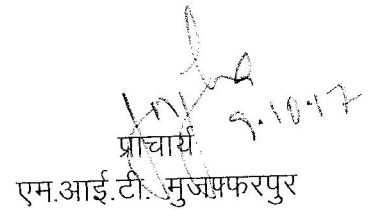 9.10.17
प्राचार्य
एम.आई.टी. मुजफ्फरपुर